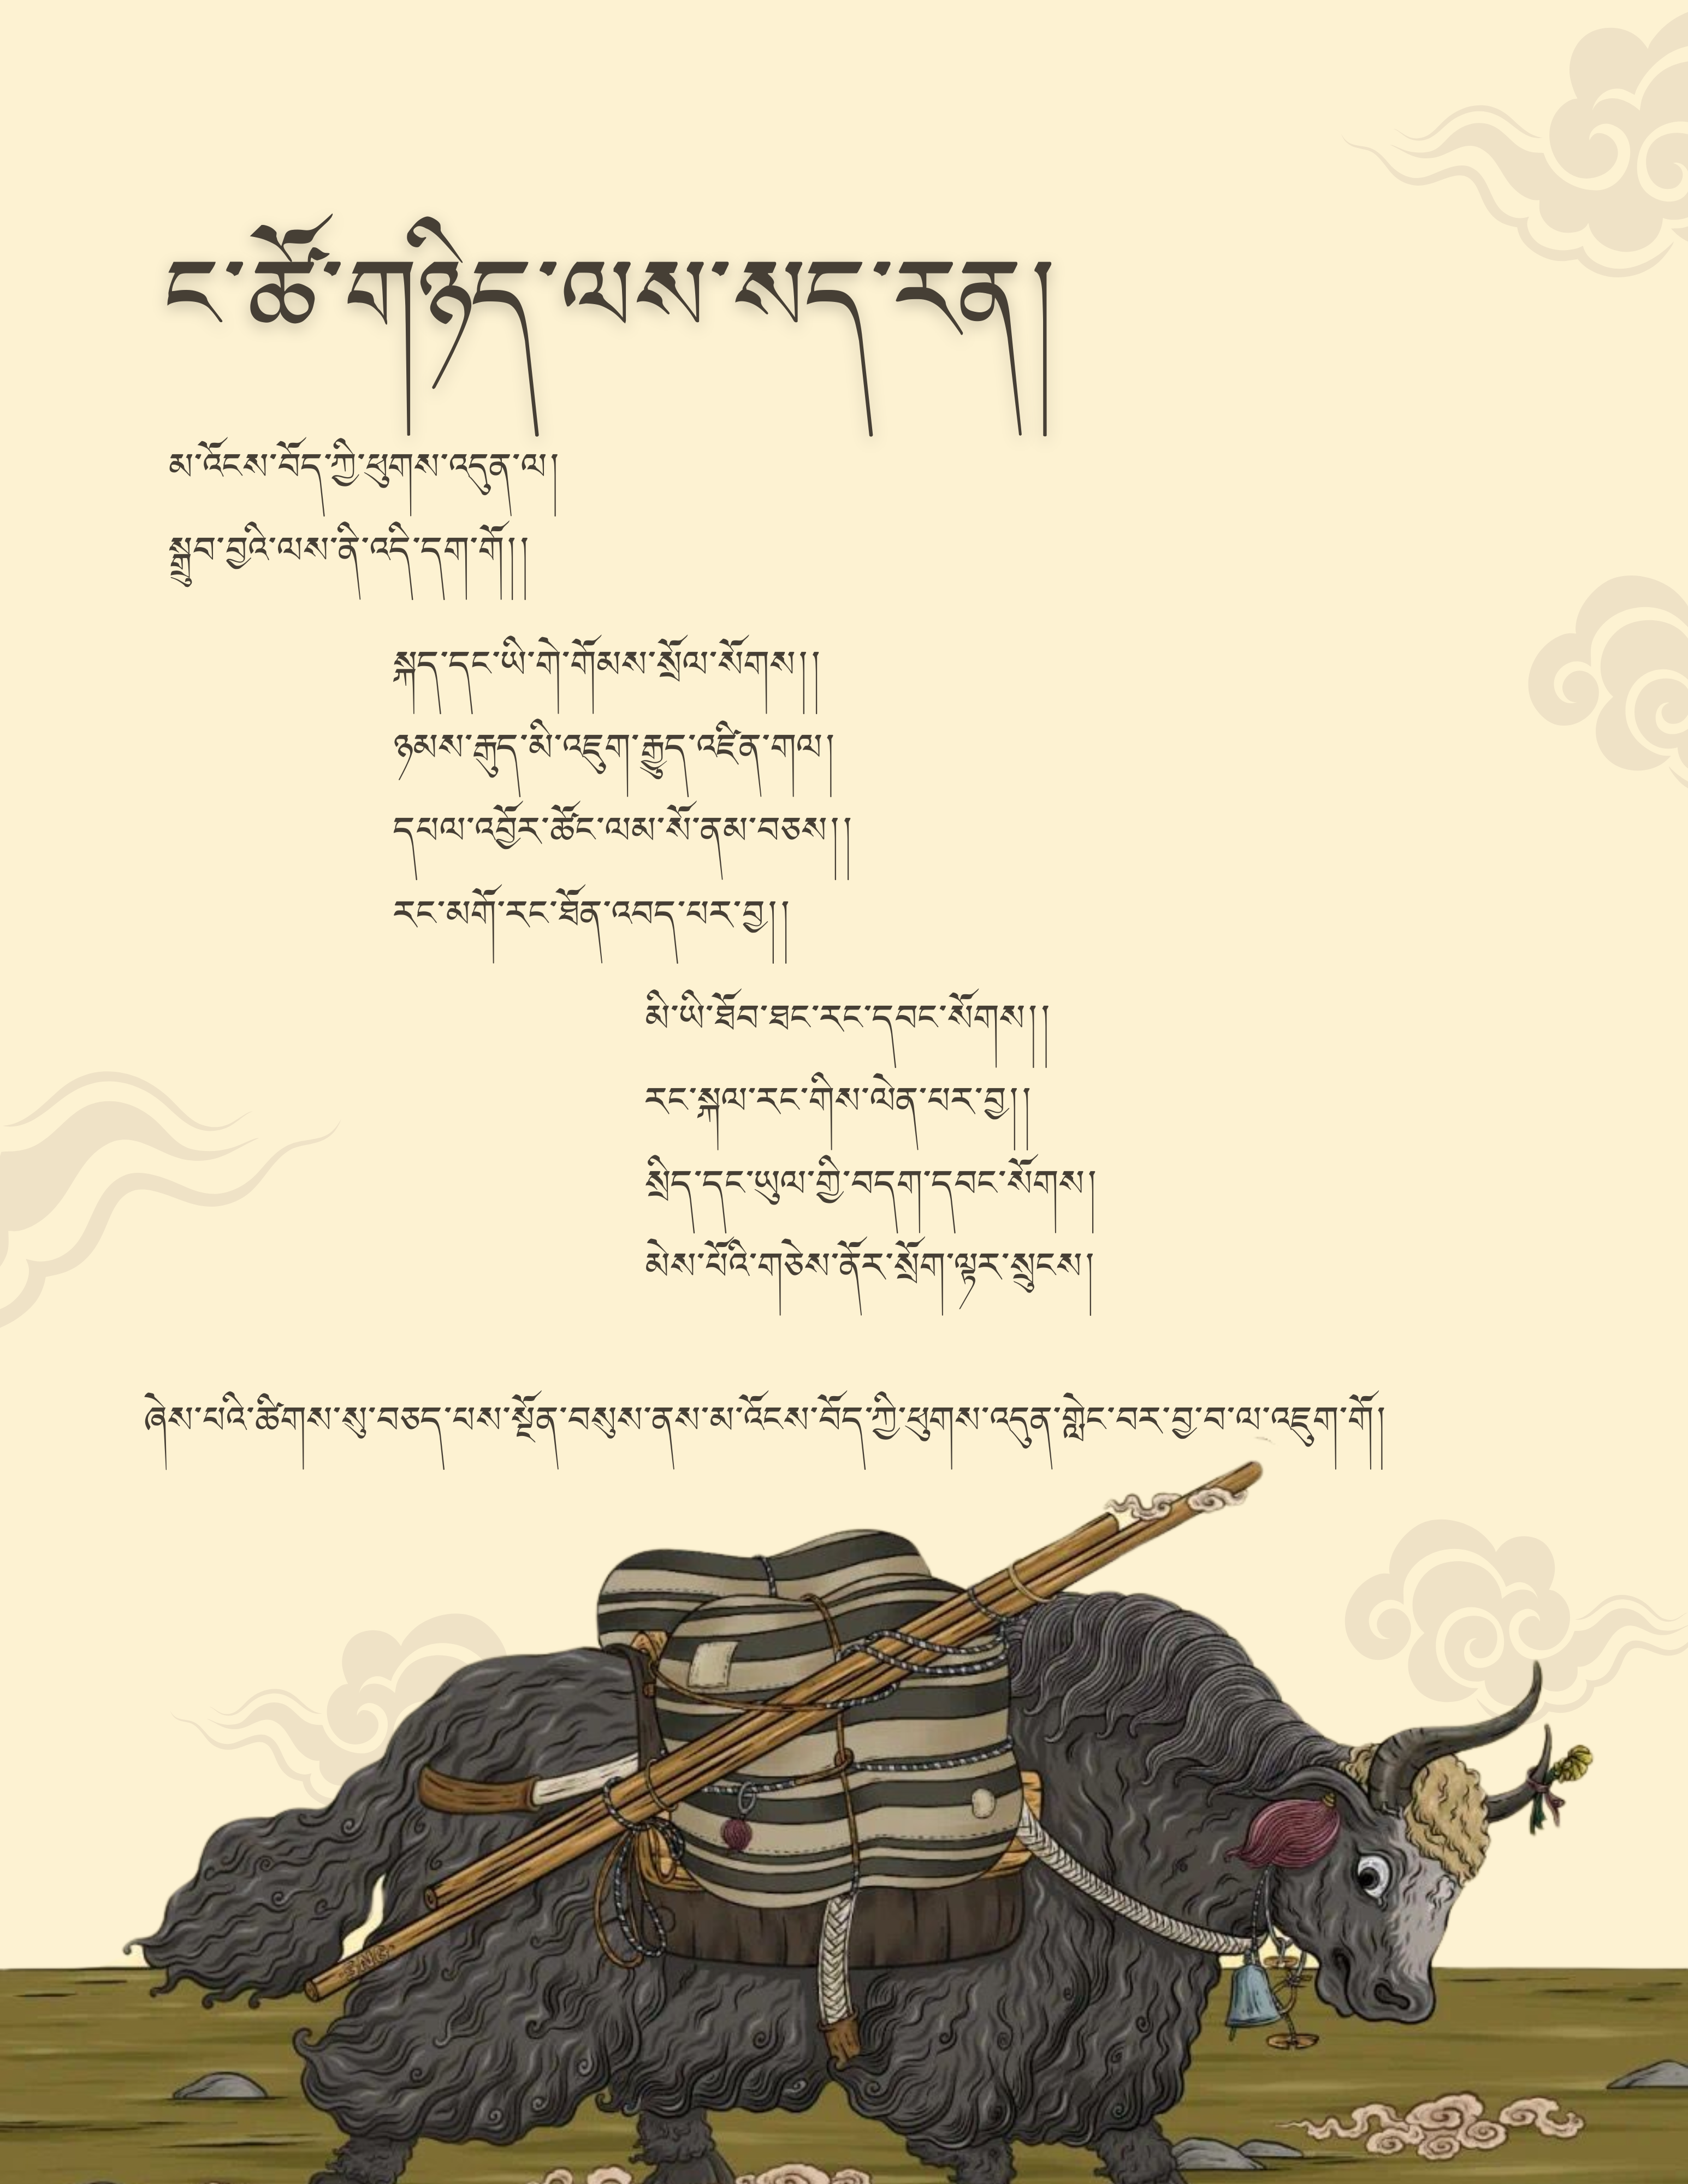 ང་ཚོ་གཉིད་ལས་སད་རན།
མ་འོངས་བོད་ཀྱི་ཕུགས་འདུན་ལ།
སྒྲུབ་བྱའི་ལས་ནི་འདི་དག་གོ།།
སྐད་དང་ཡི་གེ་གོམས་སྲོལ་སོགས།།
ཉམས་རྒུད་མི་འཇུག་རྒྱུད་འཛིན་གལ།
དཔལ་འབྱོར་ཚོང་ལམ་སོ་ནམ་བཅས།།
རང་མགོ་རང་ཐོན་འབད་པར་བྱ།།
མི་ཡི་ཐོབ་ཐང་རང་དབང་སོགས།།
རང་སྐལ་རང་གིས་ལེན་པར་བྱ།།
སྲིད་དང་ཡུལ་གྱི་བདག་དབང་སོགས།
མེས་པོའི་གཅེས་ནོར་སྲོག་ལྟར་སྲུངས།
ཞེས་པའི་ཚིགས་སུ་བཅད་པས་སྔོན་བསུས་ནས་མ་འོངས་བོད་ཀྱི་ཕུགས་འདུན་གླེང་བར་བྱ་བ་ལ་འཇུག་གོ།